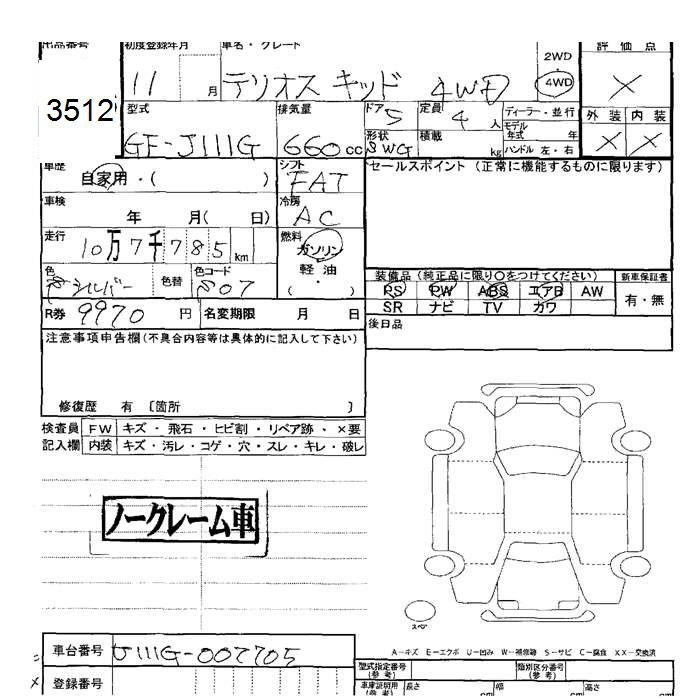 出品番号 初度登録年月 車名・グレード 評価点
3512 11 月 テリオス キッド 4WD 2WD 4WD ×
型式 排気量 ドア 5 定員 4 人 ディーラー・並行 外装 内装
GF-J111G 660 cc 形状 SWG 積載 kg モデル年式 年 ハンドル 左・右 × ×
車歴 自家用・( ) シフト FAT セールスポイント (正常に機能するものに限ります)
車検 年 月( 日) 冷房 AC
走行 10万7千785 km 燃料 ガソリン
色 シルバー 色替 色コード S07 軽油 ・( ) 装備品 (純正品に限り○をつけてください) 新車保証書
PS PW ABS エアB AW 有・無
R券 9970 円 名変期限 月 日 SR ナビ TV カワ
注意事項申告欄(不具合内容等は具体的に記入して下さい) 後日品
修復歴 有 〔箇所 〕
検査員 FW キズ・飛石・ヒビ割・リペア跡・×要
記入欄 内装 キズ・汚レ・コゲ・穴・スレ・キレ・破レ
ノークレーム車
スペア
A−キズ E−エクボ U−凹み W−補修跡 S−サビ C−腐食 XX−交換済
車台番号 J111G-007705
型式指定番号 (参考) 類別区分番号 (参考)
登録番号 車庫証明用 (参考) 長さ cm 幅 cm 高さ cm